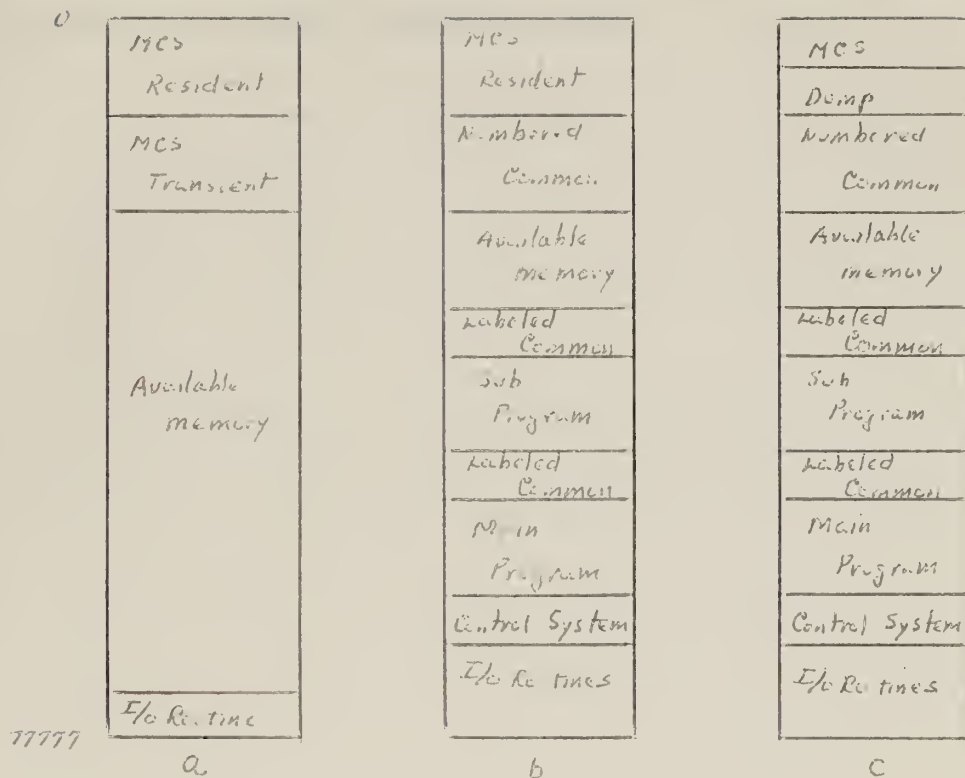 0
MCS
Resident
MCS
Transient
Available
memory
I/o Routine
77777
a
MCS
Resident
Numbered
Common
Available
memory
Labeled
Common
Sub
Program
Labeled
Common
Main
Program
Control System
I/o Routines
b
MCS
Dump
Numbered
Common
Available
memory
Labeled
Common
Sub
Program
Labeled
Common
Main
Program
Control System
I/o Routines
c